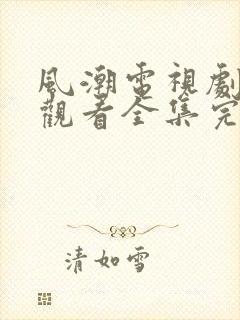 風潮電視劇
觀看全集完
清如雪